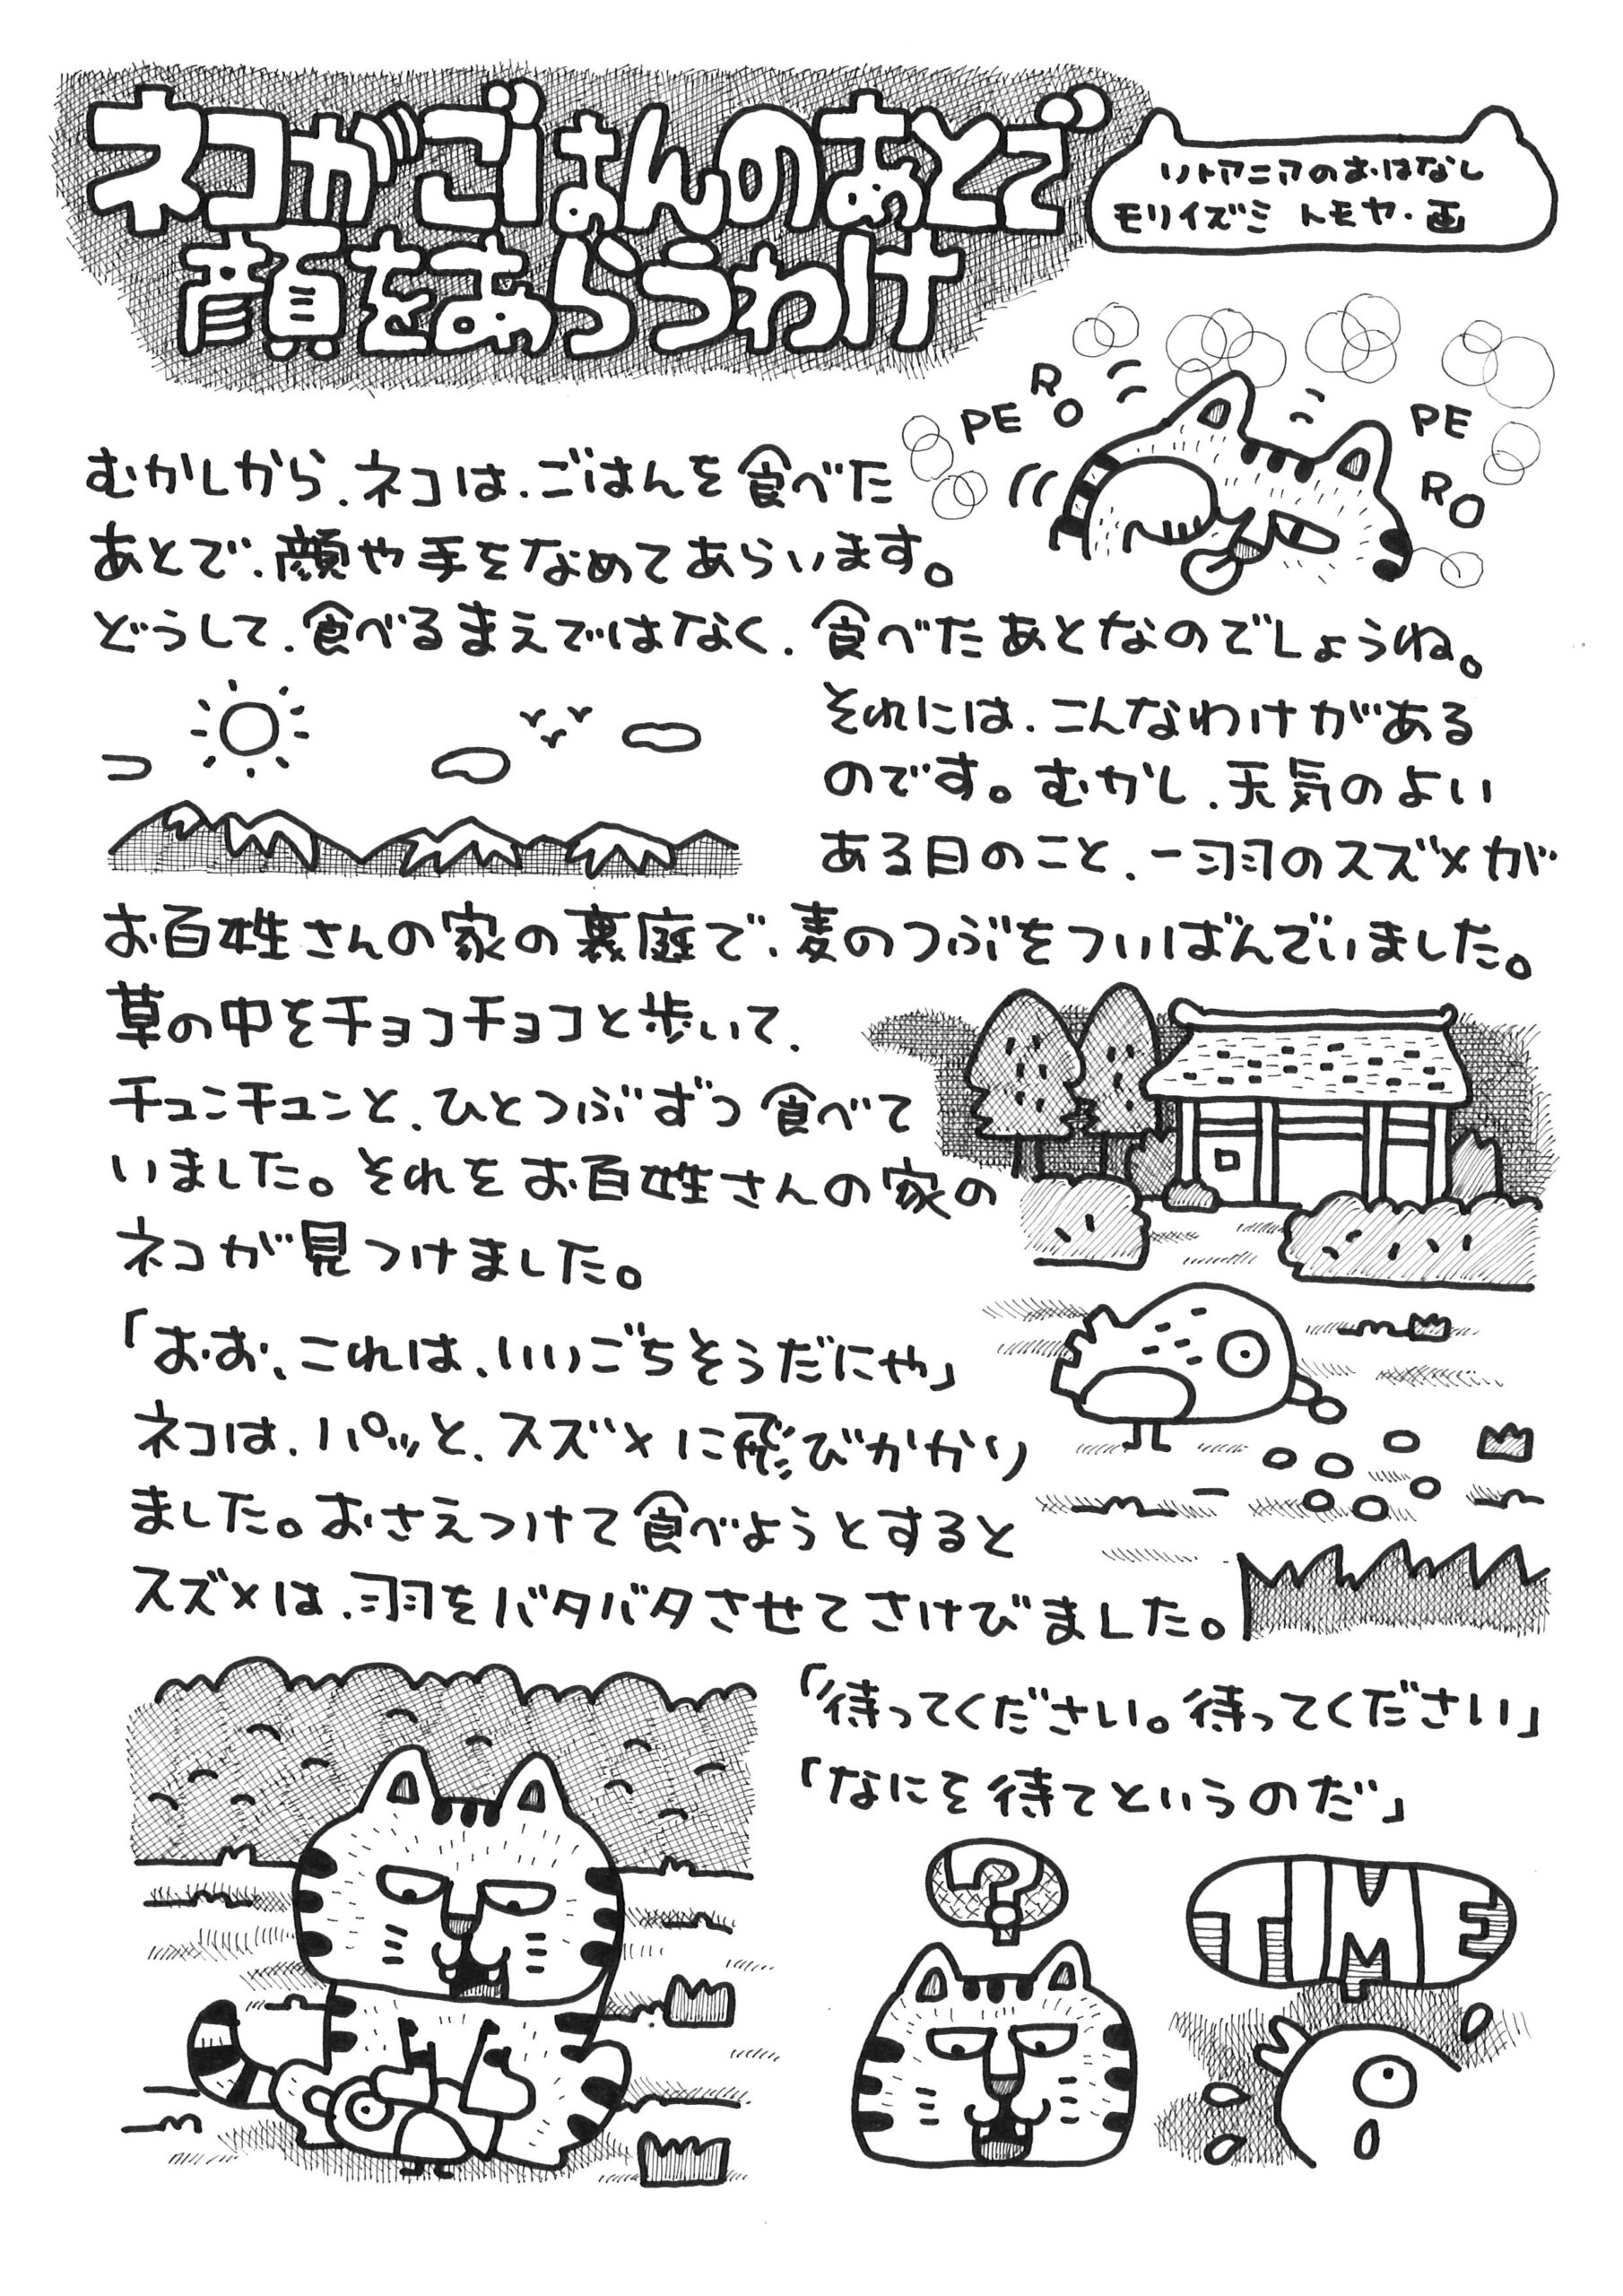 ネコがごはんのあとで
顔をあらうわけ
リトアニアのおはなし
モリイズミ トモヤ・画
PERO
PERO
むかしから、ネコは、ごはんを食べた
あとで、顔や手をなめてあらいます。
どうして、食べるまえではなく、食べたあとなのでしょうね。
それには、こんなわけがある
のです。むかし、天気のよい
ある日のこと、一羽のスズメが
お百姓さんの家の裏庭で、麦のつぶをついばんでいました。
草の中をチョコチョコと歩いて、
チュンチュンと、ひとつぶずつ食べて
いました。それをお百姓さんの家の
ネコが見つけました。
「おお、これは、いいごちそうだにゃ」
ネコは、パッと、スズメに飛びかかり
ました。おさえつけて食べようとすると
スズメは、羽をバタバタさせてさけびました。
「待ってください。待ってください」
「なにを待てというのだ」
?
TIME